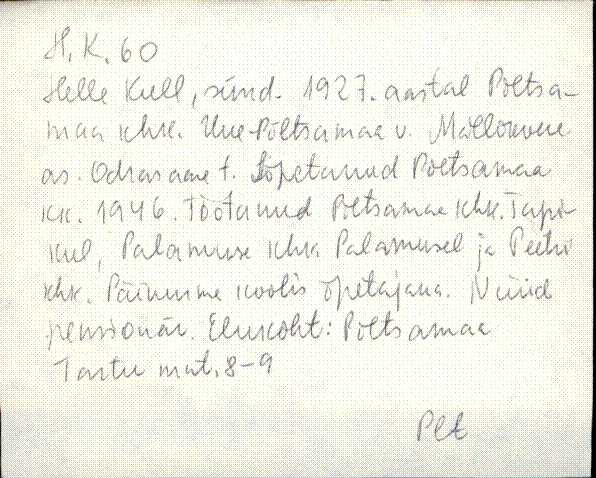 H. K. 60
Helle Kull, sünd. 1927. aastal Põltsa-
maa khk. Uue-Põltsamaa v. Mällikvere
as. Odrasaare t. Lõpetanud Põltsamaa
KK. 1946. Töötanud Põltsamaa khk. Tapi-
kul, Palamuse khk Palamusel ja Peetri
khk. Päinurme koolis õpetajana. Nüüd
pensionär. Elukoht: Põltsamaa
Tartu mnt. 8-9
Plt